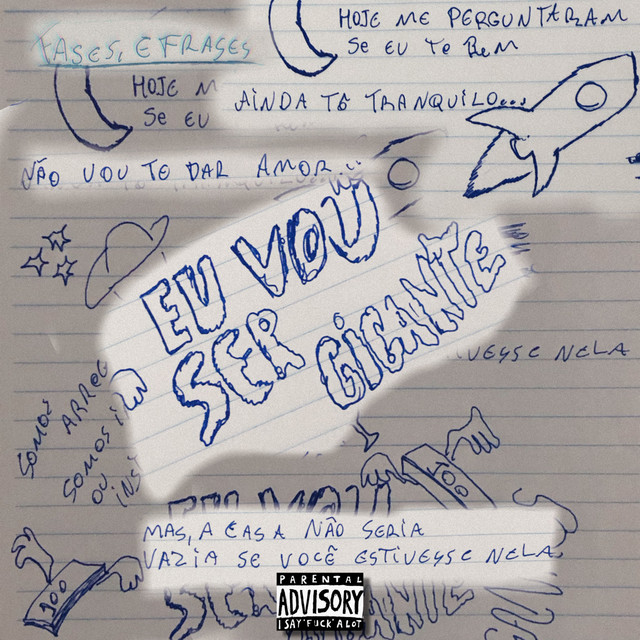 FASES, E FRASES
HOJE ME PERGUNTARAM
SE EU TÔ BEM
HOJE M
SE EU
AINDA TÔ TRANQUILO...
NÃO VOU TE DAR AMOR
EU VOU
SER GIGANTE
VESSE NELA
SOMOS
ARROG
SOMOS i
OU
INS
100
100
EU VOU
MAS, A CASA NÃO SERIA
VAZIA SE VOCÊ ESTIVESSE NELA
SER GIGANTE
PARENTAL
ADVISORY
I SAY "FUCK" A LOT